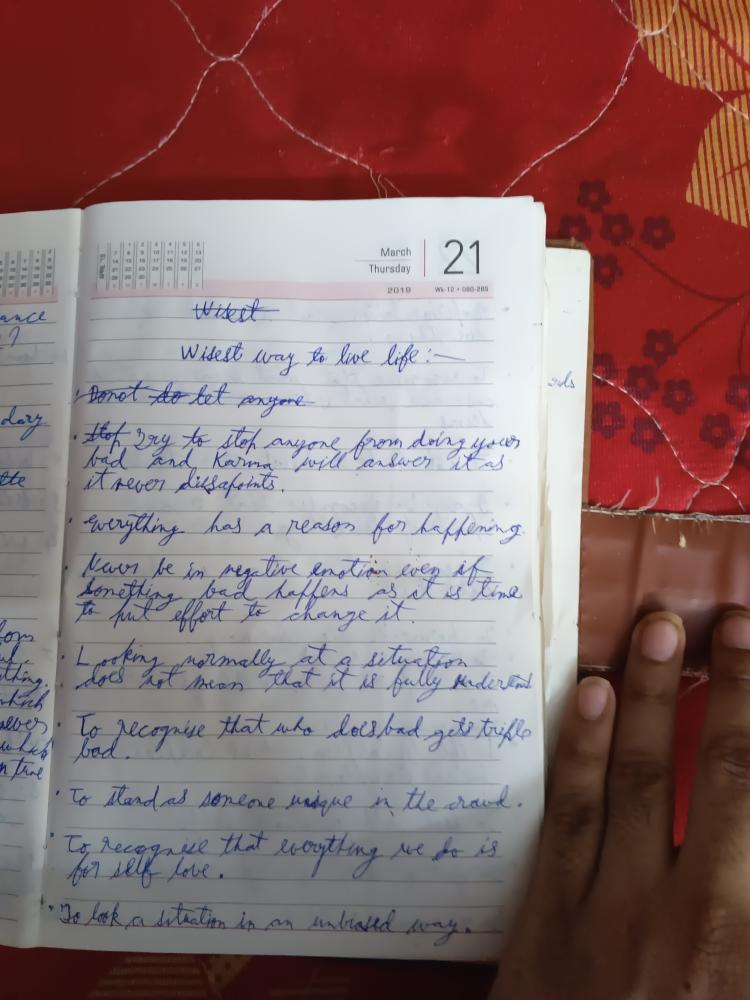 March
Thursday
21
2019 Wk-12 • 080-285
Wisest
Wisest way to live life:—
Donot do let anyone
Stop Try to stop anyone from doing your
bad and Karma will answer it as
it never dissapoints.
Everything has a reason for happening.
Never be in negative emotion even if
something bad happens as it is time
to put effort to change it.
Looking normally at a situation
does not mean that it is fully
To recognise that who does bad gets triple
bad.
To stand as someone unique in the crowd.
To recognise that everything we do is
for self love.
To look a situation in an unbiased way.
ance
?
dary
tte
thing.
which
never
which